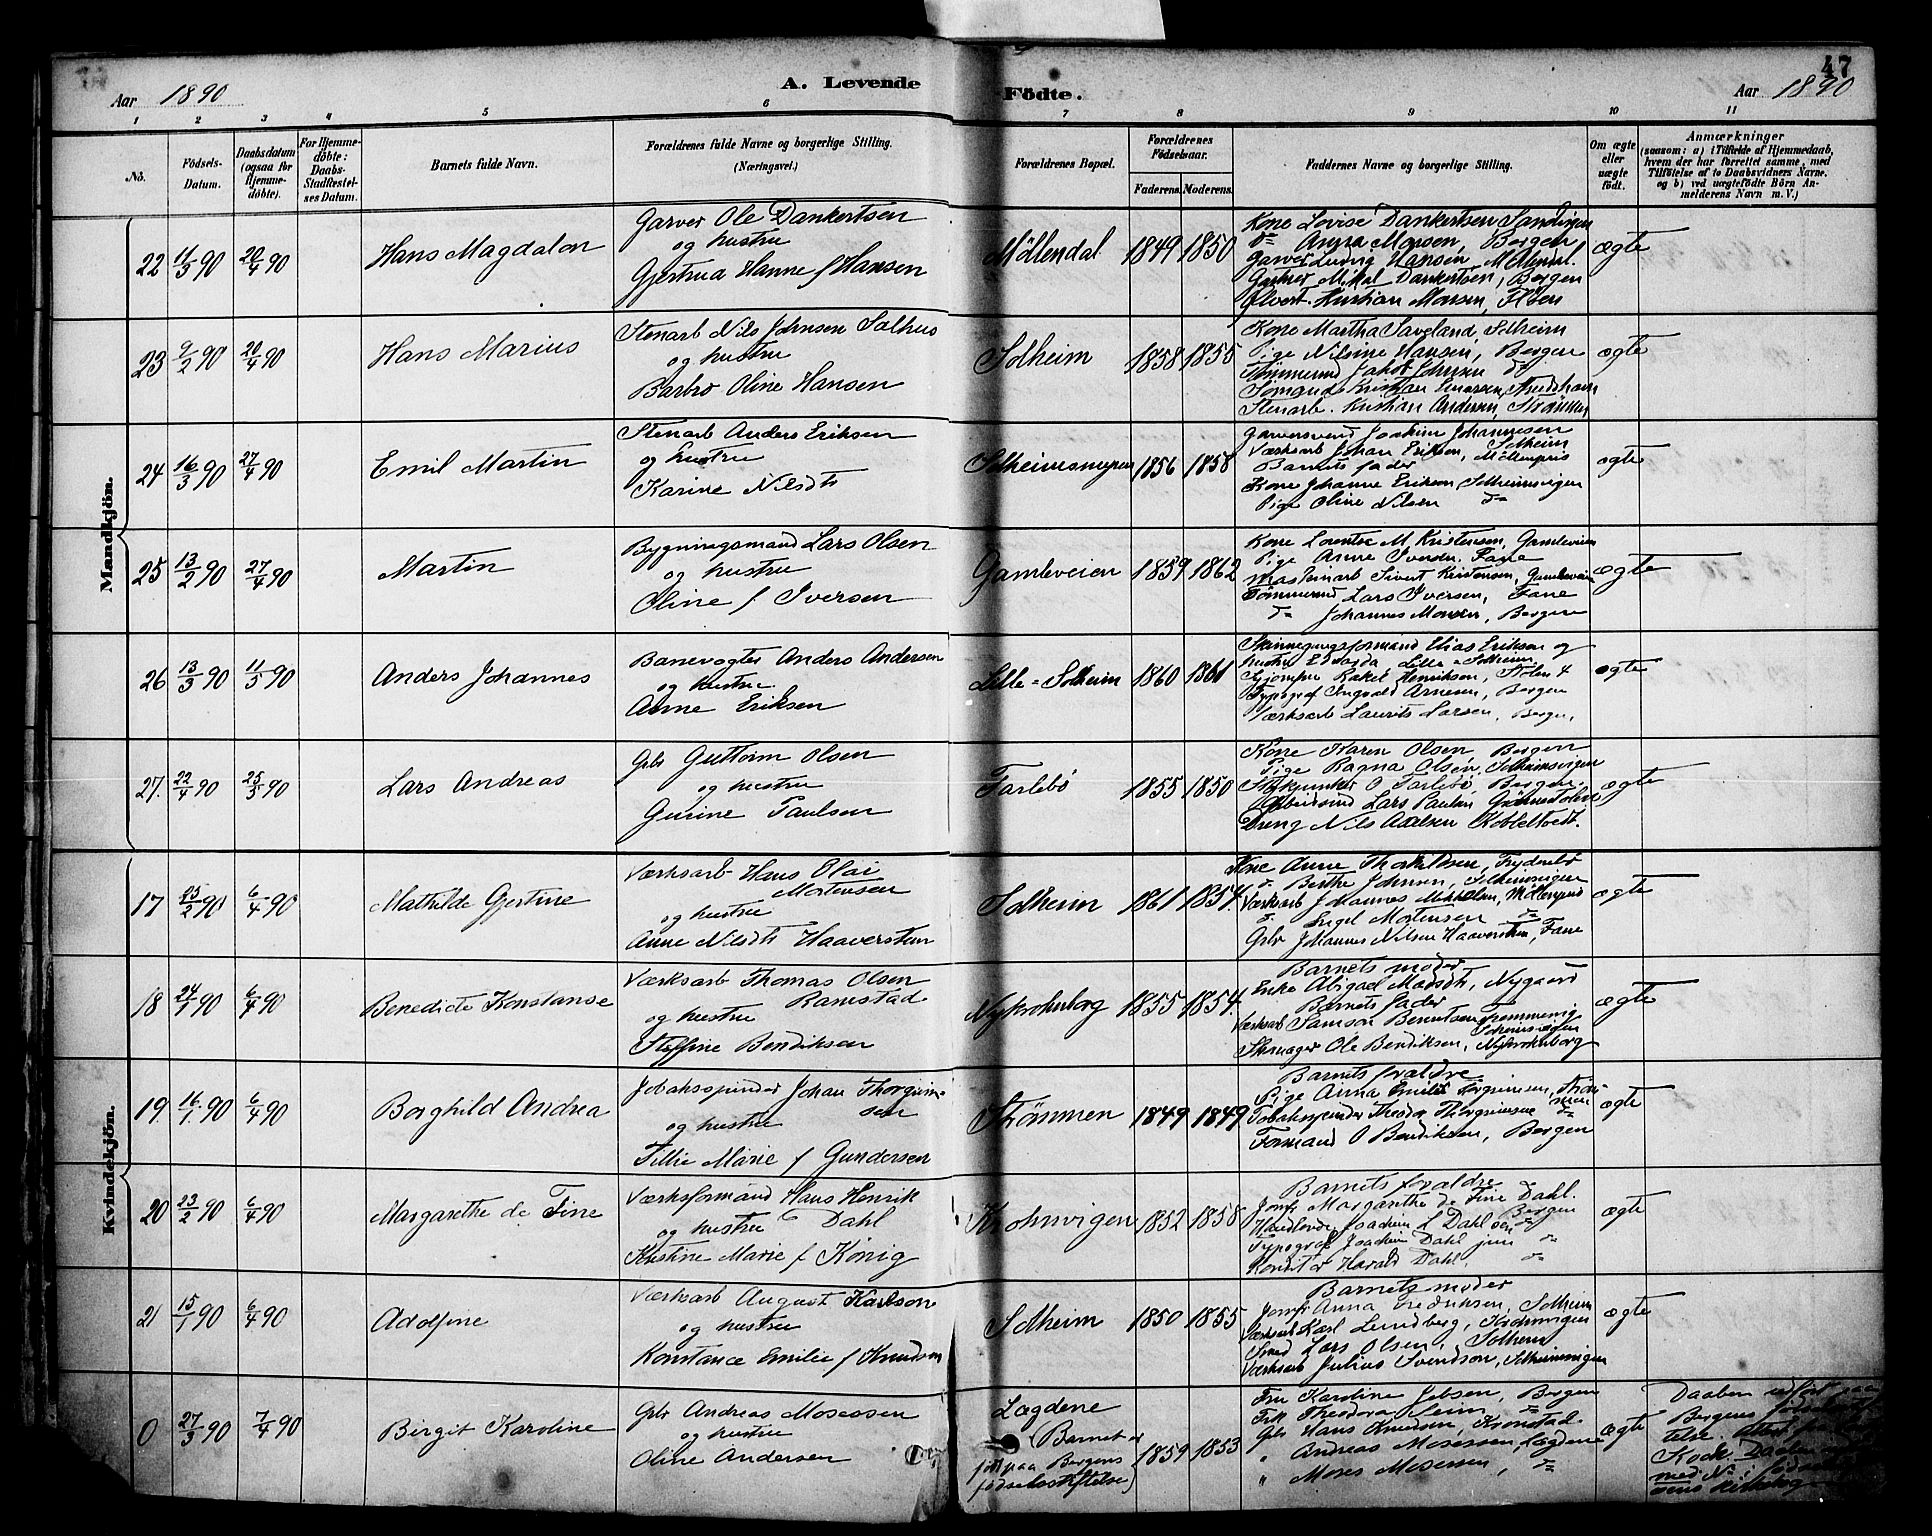 47
Aar 1890
A. Levende
Födte.
Aar 1890
1 2 3 4 5 6 7 8 9 10 11
No.
Födsels-Datum.
Daabsdatum (ogsaa for Hjemme-döbte).
For Hjemme-döbte: Daabs-Stadfæstel-ses Datum.
Barnets fulde Navn.
Forældrenes fulde Navne og borgerlige Stilling.
(Næringsvei.)
Forældrenes Bopæl.
Forældrenes Födselsaar.
Faderens. Moderens.
Faddernes Navne og borgerlige Stilling.
Om ægte eller uægte födt.
Anmærkninger
(saasom: a) i Tilfælde af Hjemmedaab,
hvem der har forrettet samme, med
Tilföielse af to Daabsvidners Navne.
og b) ved uægtefödte Börn An-
melderens Navn m. V.)
Mandkjön.
22 11/3 90 20/4 90 Hans Magdalon
Garver Ole Dankertsen
og hustru
Gjertrud Hanne f Hansen
Möllendal 1849 1850
Kone Lovise Dankertsen Sandvigen
do Anna Monsen, Bergen
Garver Ludvig Hansen, Möllendal
Gartner Mikal Dankertsen, Bergen
Kristian Monsen,
ægte
23 9/2 90 20/4 90 Hans Marius
Stenarb Nils Johnsen Salhus
og hustru
Barbro Oline Hansen
Solheim 1858 1855
Kone Martha Saveland, Solheim
Pige Nilsine Hansen, Bergen
Tömmermd Jakob Johnsen do
Sömand Kristian
Stenarb. Kristian Andersen,
ægte
24 16/3 90 27/4 90 Emil Martin
Stenarb Anders Eriksen
og hustru
Karine Nilsdt
Solheimsmyren 1856 1858
Garversvend Joakim Johannesen
Solheim
Værksarb Johan Eriksen, Möllenpris
Barnets fader
Kone Johanne Eriksen Solheimsvigen
Pige Oline Nilsen do
ægte
25 13/2 90 27/4 90 Martin
Bygningsmand Lars Olsen
og hustru
Oline f Iversen
Gamleveien 1859 1862
Kone Lorentze M Kristensen, Gamleveien
Pige Anne Iversdn, Fane
Sivert Kristensen, Gamleveien
Tömmermd Lars Iversen, Fane
do Johannes Monsen, Bergen
ægte
26 13/3 90 11/5 90 Anders Johannes
Banevogter Anders Andersen
og hustru
Anne Eriksen
Lille-Solheim 1860 1861
Elias Eriksen og
hustru Edvarda, Lille-Solheim
Jomfru Rakel Henriksen,
Typograf Ingvald Arnesen, Bergen
Værksarb Laurits Larsen, Bergen,
ægte
27. 22/4 90 25/5 90 Lars Andreas
Gbr Guttorm Olsen
og hustru
Gurine Paulsen
Tarlebö 1855 1850
Kone Karen Olsen, Bergen
Pige Ragna Olsen, Solheimsvigen
O Tarlebö, Bergen
Arbeidsmd Lars Paulsen
Dreng Nils Axelsen Kobbeltvedt.
ægte
Kvindekjön.
17 25/2 90 6/4 90 Mathilde Gjertine
Værksarb Hans Olai
Mortensen
og hustru
Anne Nilsdt Haaverstun
Solheim 1861 1854.
Kone Anne Thorkildsen, Frydenbö
do Berthe Johnsen, Solheimsvigen
Værksarb Johannes Mikkelsen, Möllenpris
do Engel Mortensen do
Gbr Johannes Nilsen Haaverstun, Fane
ægte
18 24/1 90 6/4 90 Benedicte Konstanse
Værksarb Thomas Olsen
Ramstad
og hustru
Steffine Bendiksen
Nykrohnborg 1855 1854.
Barnets moder
Enke Abigael Madsdt, Nygaard
Barnets fader
Værksarb Samson Berentsen
Solheimsvigen
Skomager Ole Bendiksen, Nykrohnborg
ægte
19. 16/1. 90 6/4 90 Borghild Andrea
Tobaksspinder Johan Thorgrim-
sen
og hustru
Tillie Marie f Gundersen
Strömmen 1849 1849
Barnets forældre
Pige Anna Emilie Torgrimsen, Ström-
men
Tobaksspinder Theodor Thorgrimsen do
Formand O Bendiksen, Bergen
ægte
20 23/2 90 6/4 90 Margarethe de Fine
Værksformand Hans Henrik
og hustru Dahl
Kristine Marie f König
Krohnvigen 1852 1858
Barnets forældre
Jomfr Margarethe de Fine Dahl.
Bergen
Handlende Joachim L Dahl sen do
Typograf Joachim Dahl jun do
Konditor Harald Dahl, do
ægte
21 15/1 90 6/4 90 Adolfine
Værksarb August Karlson
og hustru
Konstance Emilie f Knudsen
Solheim 1850 1855
Barnets moder
Jomfr Anna Fredriksen, Solheim
Værksarb Karl Lundberg, Krohnvigen
Smed Lars Olsen, Solheim
Værksarb Julius Svendson, Solheimsvigen
ægte
0 27/3 90 7/4 90 Birgit Karoline
Gbr Andreas Mosessen
og hustru
Oline Andersen
Lægdene
(Barnet er
født paa Bergens
fødselsstiftelse)
1859 1853
Fru Karoline Jebsen, Bergen
Frk Theodora Heim do
Gbr Hans Knudsen, Kronstad
" Andreas Mosessen, Lægdene
" Moses Mosessen, do
ægte
Daaben udført paa
Bergens fødselsstif-
telse.
Kock. Daaben
med No